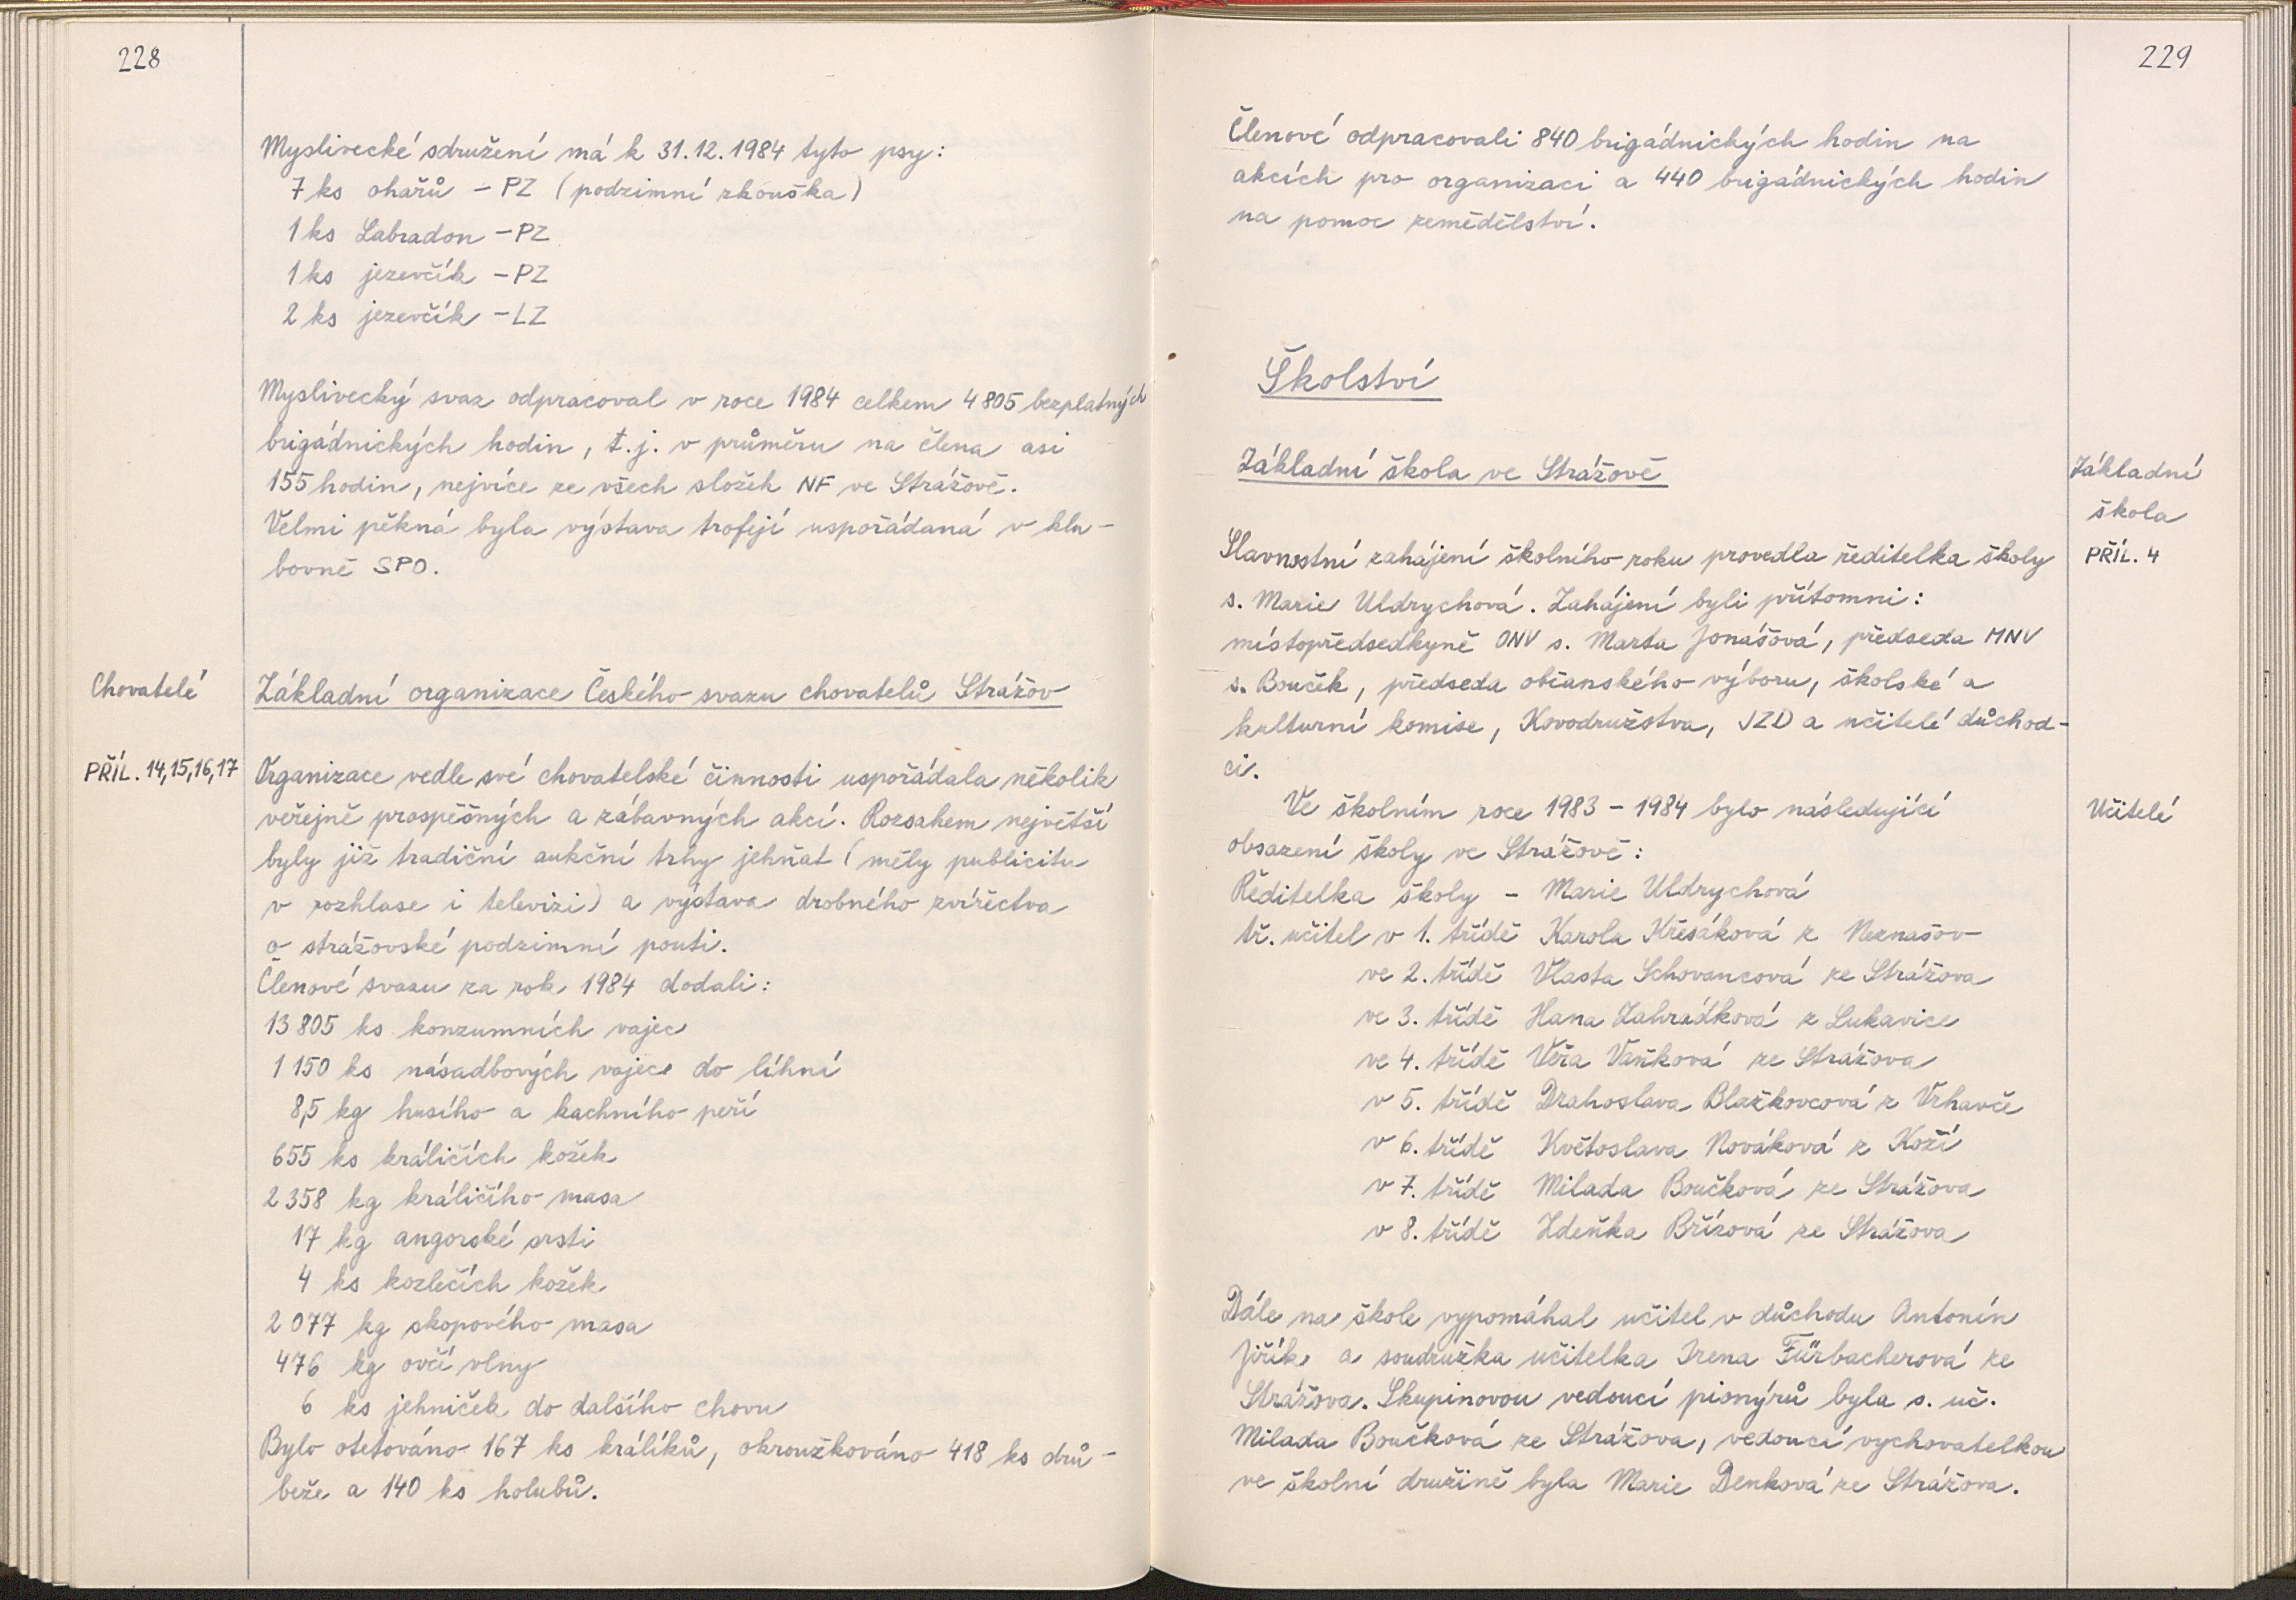 228
Myslivecké sdružení má k 31.12.1984 tyto psy:
7 ks ohařů - PZ (podzimní zkouška)
1 ks Labradon - PZ
1 ks jezevčík - PZ
2 ks jezevčík - LZ
Myslivecký svaz odpracoval v roce 1984 celkem 4 805 bezplatných
brigádnických hodin, t.j. v průměru na člena asi
155 hodin, nejvíce ze všech složek NF ve Strážově.
Velmi pěkná byla výstava trofejí uspořádaná v klu-
bovně SPO.
Chovatelé
Základní organizace Českého svazu chovatelů Strážov
PŘÍL. 14,15,16,17
Organizace vedle své chovatelské činnosti uspořádala několik
veřejně prospěšných a zábavných akcí. Rozsahem největší
byly již tradiční aukční trhy jehňat (měly publicitu
v rozhlase i televizi) a výstava drobného zvířectva
o strážovské podzimní pouti.
Členové svazu za rok 1984 dodali:
13 805 ks konzumních vajec
1 150 ks násadbových vajec do líhní
8,5 kg husího a kachního peří
655 ks králičích kožek
2 358 kg králičího masa
17 kg angorské srsti
4 ks kozlečích kožek
2 077 kg skopového masa
476 kg ovčí vlny
6 ks jehniček do dalšího chovu
Bylo otetováno 167 ks králíků, okroužkováno 418 ks drů-
beže a 140 ks holubů.
229
Členové odpracovali 840 brigádnických hodin na
akcích pro organizaci a 440 brigádnických hodin
na pomoc zemědělství.
Školství
Základní škola ve Strážově
Základní
škola
PŘÍL. 4
Slavnostní zahájení školního roku provedla ředitelka školy
s. Marie Uldrychová. Zahájení byli přítomni:
místopředsedkyně ONV s. Marta Jonášová, předseda MNV
s. Bouček, předseda občanského výboru, školské a
kulturní komise, Kovodružstva, JZD a učitelé důchod-
ci.
Ve školním roce 1983 - 1984 bylo následující
Učitelé
obsazení školy ve Strážově:
Ředitelka školy - Marie Uldrychová
tř. učitel v 1. třídě Karola Křesáková z Neznašov
ve 2. třídě Vlasta Schovancová ze Strážova
ve 3. třídě Hana Zahrádková z Lukavice
ve 4. třídě Věra Vaňková ze Strážova
v 5. třídě Drahoslava Blažkovcová z Vrhavče
v 6. třídě Květoslava Nováková z Koží
v 7. třídě Milada Boučková ze Strážova
v 8. třídě Zdeňka Břízová ze Strážova
Dále na škole vypomáhal učitel v důchodu Antonín
Jiřík a soudružka učitelka Irena Fürbacherová ze
Strážova. Skupinovou vedoucí pionýrů byla s. uč.
Milada Boučková ze Strážova, vedoucí vychovatelkou
ve školní družině byla Marie Denková ze Strážova.